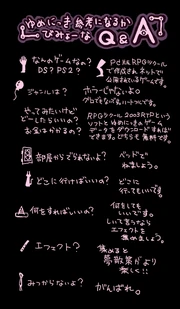 ゆめにっき 参考になるか
びみょーな Q&A
なんのゲームなの?
DS? PS2?
PC用RPGツクール
で作成され ネットで
公開されているゲームです。
ジャンルは?
ホラーじゃないよ
やってみたいけど
どーしたらいいの?
お金かかるの?
RPGツクール2003RTPという
ソフトと ゆめにっきの ゲーム
データを ダウンロード すれば
できます。どちらも 無料です。
部屋から でられないよ?
ベッドで
ねましょう。
どこに行けばいいの?
どこに
行ってもいいです。
何をすればいいの?
何をしても
いいです。
しいて言うなら
エフェクトを
集めましょう。
エフェクト?
集めると
夢散策がより
楽しく!!
みつからないよ?
がんばれ。